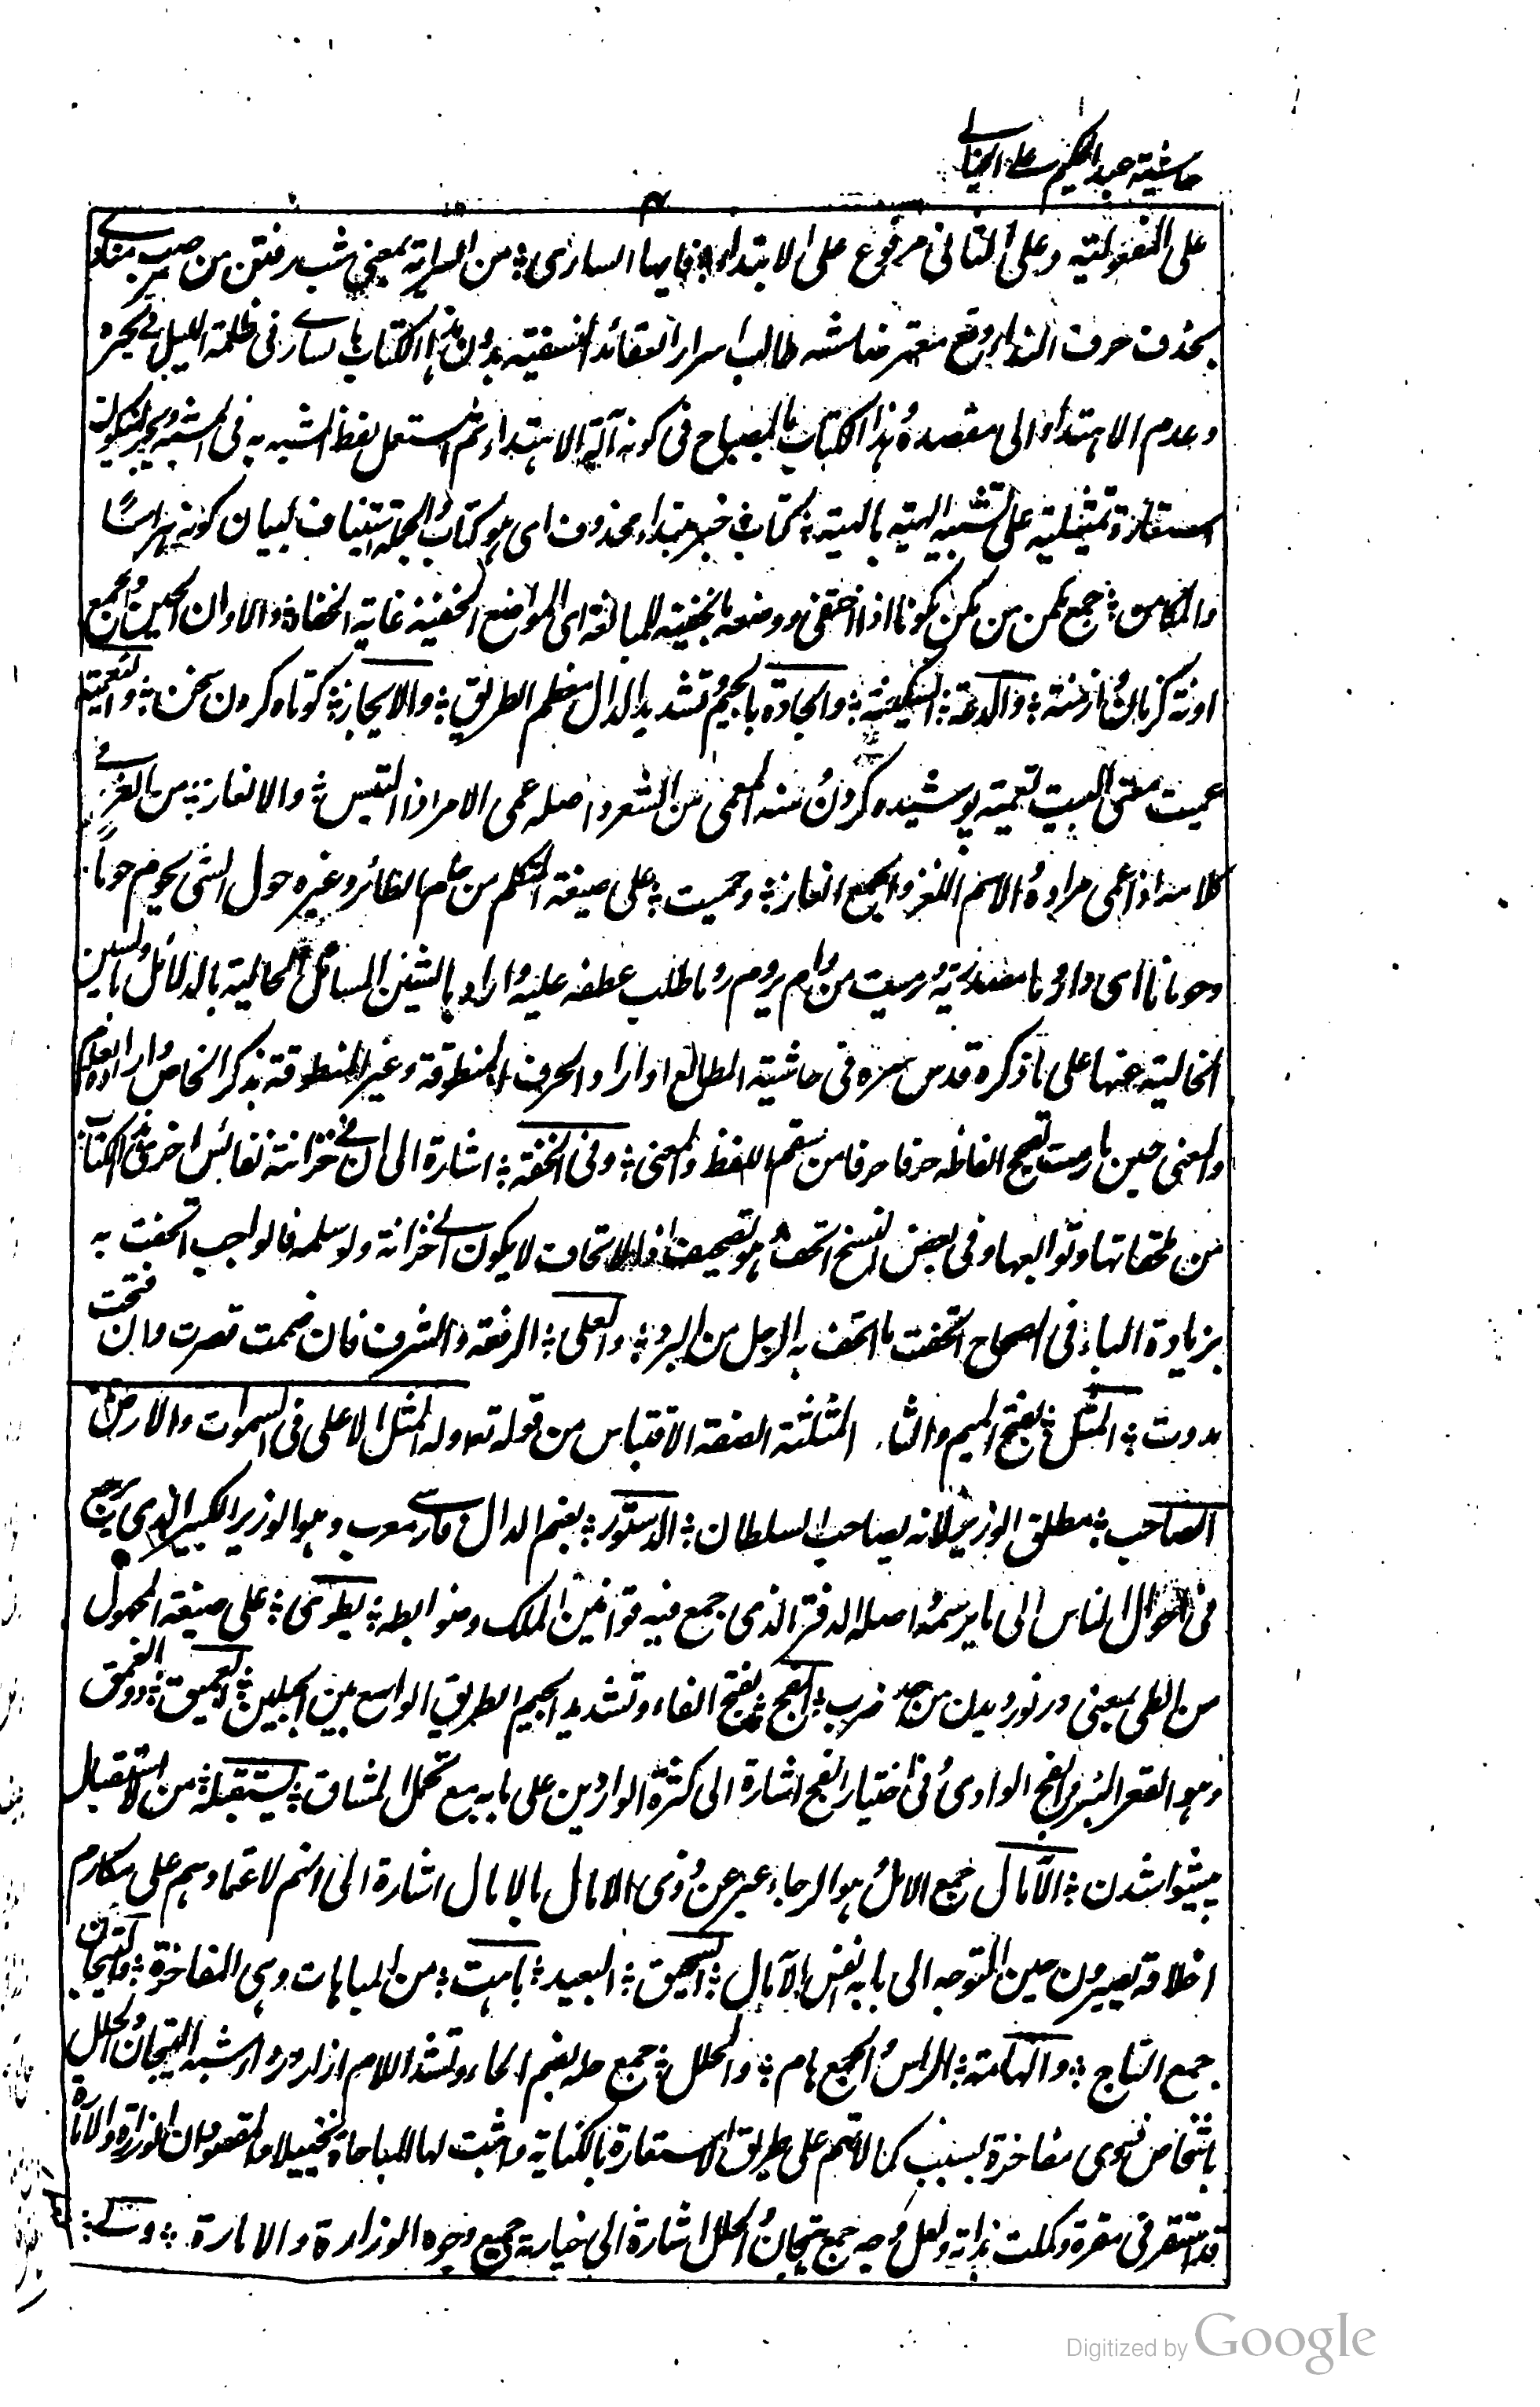 حاشية عبد الحكيم على الخيالي
٣
على المفعولية وعلى الثاني مرفوع على الابتداء فايها الساري ؛ من السراية بمعنى شب رفتن من ضرب منادى
بحذف حرف النداء وقع معترضا شبه طالب اسرار العقائد النسفية بدون هذا الكتاب بالساري في ظلمة الليل في تحيره
وعدم الاهتداء الى مقصده وهذا الكتاب بالمصباح في كونه آلة الاهتداء ثم استعمل لفظ المشبه به في المشبه ويجوز ان يكون
استعارة تمثيلية على تشبيه الهيئة بالهيئة ؛ كتاب خبر مبتداء محذوف اى هو كتاب والجملة استيناف لبيان كونه نبراسا
والمكامن ؛ جمع مكمن من كمن كمونا اذا اختفى ووصفه بالخفية للمبالغة اى المواضع الخفية غاية الخفاء والاوان الحين والجمع
اونة كزمان وازمنة ؛ والدعة ؛ السكينة ؛ والجادة بالجيم وتشديد الدال معظم الطريق ؛ والايجاز ؛ كوتاه كردن سخن ؛ والتعمية
عميت معنى البيت تعمية پوشيده كردن ومنه المعمى من الشعر واصله عمى الامر اذا التبس ؛ والالغاز ؛ من الغز في
كلامه اذا عمى مراده والاسم اللغز والجمع الغاز ؛ وحميت ؛ على صيغة المتكلم من حام الطائر وغيره حول الشي يحوم حوما
وحومانا اى دار وما مصدرية ورمت من رام يروم روما طلب عطف عليه واراد بالشين المسائل الحالية بالدلائل وبالسين
الخالية عنها على ما ذكره قدس سره في حاشية المطالع او اراد الحروف المنطوقة وغير المنطوقة بذكر الخاص وارادة العام
والمعنى حين ما رمت تصحيح الفاظه حرفا حرفا من سقم اللفظ والمعنى ؛ وفي الخفة ؛ اشارة الى ان في خزانته نفائس اخر وهذا الكتاب
من ملحقاتها وتوابعها وفي بعض النسخ اتحفت وهو تصحيف اذ الاتحاف لا يكون الى خزانة ولو سلم فالواجب اتحفت به
بزيادة الباء في الصحاح التحفة ما اتحفت به الرجل من البر ؛ والعلى ؛ الرفعة والشرف فان ضممت قصرت وان فتحت
مدوت ؛ المثل ؛ بفتح الميم والثاء المثلثة الصفة الاقتباس من قوله تع وله المثل الاعلى في السموات والارض
الصاحب ؛ مطلق الوزير لانه يصاحب السلطان ؛ الدستور ؛ بضم الدال فارسي معرب وهو الوزير الكبير الذي يرجع
في احوال الناس الى ما يرسمه واصله الدفتر الذي جمع فيه قوانين الملك وضوابطه ؛ يطوى ؛ على صيغة المجهول
من الطى بمعنى در نورديدن من حد ضرب ؛ الفج ؛ بفتح الفاء وتشديد الجيم الطريق الواسع بين الجبلين ؛ العميق ؛ ذو العمق
وهو القعر البئر والفج الوادى وفي اختيار الفج اشارة الى كثرة الواردين على بابه مع تحمل المشاق ؛ يستقبله ؛ من الاستقبال
پيشوا شدن ؛ الآمال ؛ جمع الامل وهو الرجاء عبر عن ذوى الامال بالامال اشارة الى انهم لاعتمادهم على مكارم
اخلاقه يصيرون حين التوجه الى بابه نفس الآمال ؛ السحيق ؛ البعيد ؛ باهت ؛ من المباهات وهي المفاخرة ؛ والتيجان
جمع التاج ؛ والهامة ؛ الراس والجمع هام ؛ والحلل ؛ جمع حلة بضم الحاء وتشد اللام ازار ورداء شبه التيجان والحلل
باشخاص ذوى مفاخرة بسبب كمالاتهم على طريق الاستعارة بالكناية واثبت لها المباهاة تخييلا والمقصود ان الوزارة والامارة
قد استقر في مقره وكملت بذاته ولعل وجه جمع تيجان والحلل اشارة الى حيازة جميع وجوه الوزارة والامارة ؛ ولي ؛
Digitized by Google